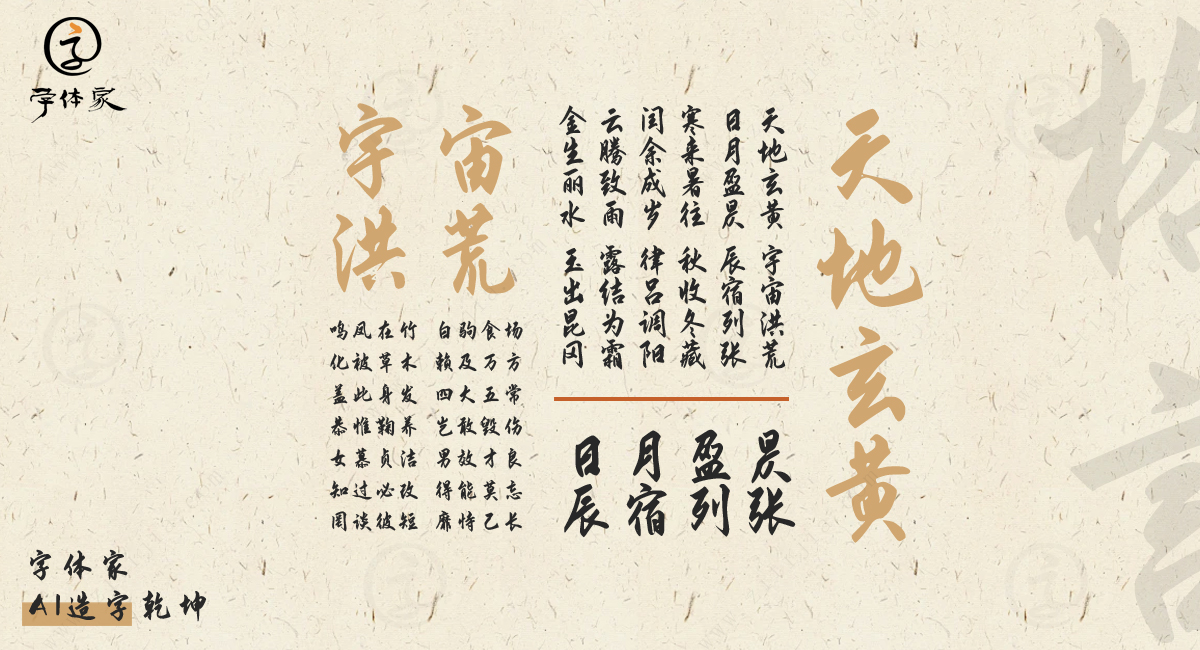 字体家
天地玄黄
天地玄黄 宇宙洪荒
日月盈昃 辰宿列张
寒来暑往 秋收冬藏
闰余成岁 律吕调阳
云腾致雨 露结为霜
金生丽水 玉出昆冈
日月盈昃
辰宿列张
宇宙
洪荒
鸣凤在竹 白驹食场
化被草木 赖及万方
盖此身发 四大五常
恭惟鞠养 岂敢毁伤
女慕贞洁 男效才良
知过必改 得能莫忘
罔谈彼短 靡恃己长
字体家
AI造字乾坤
格言